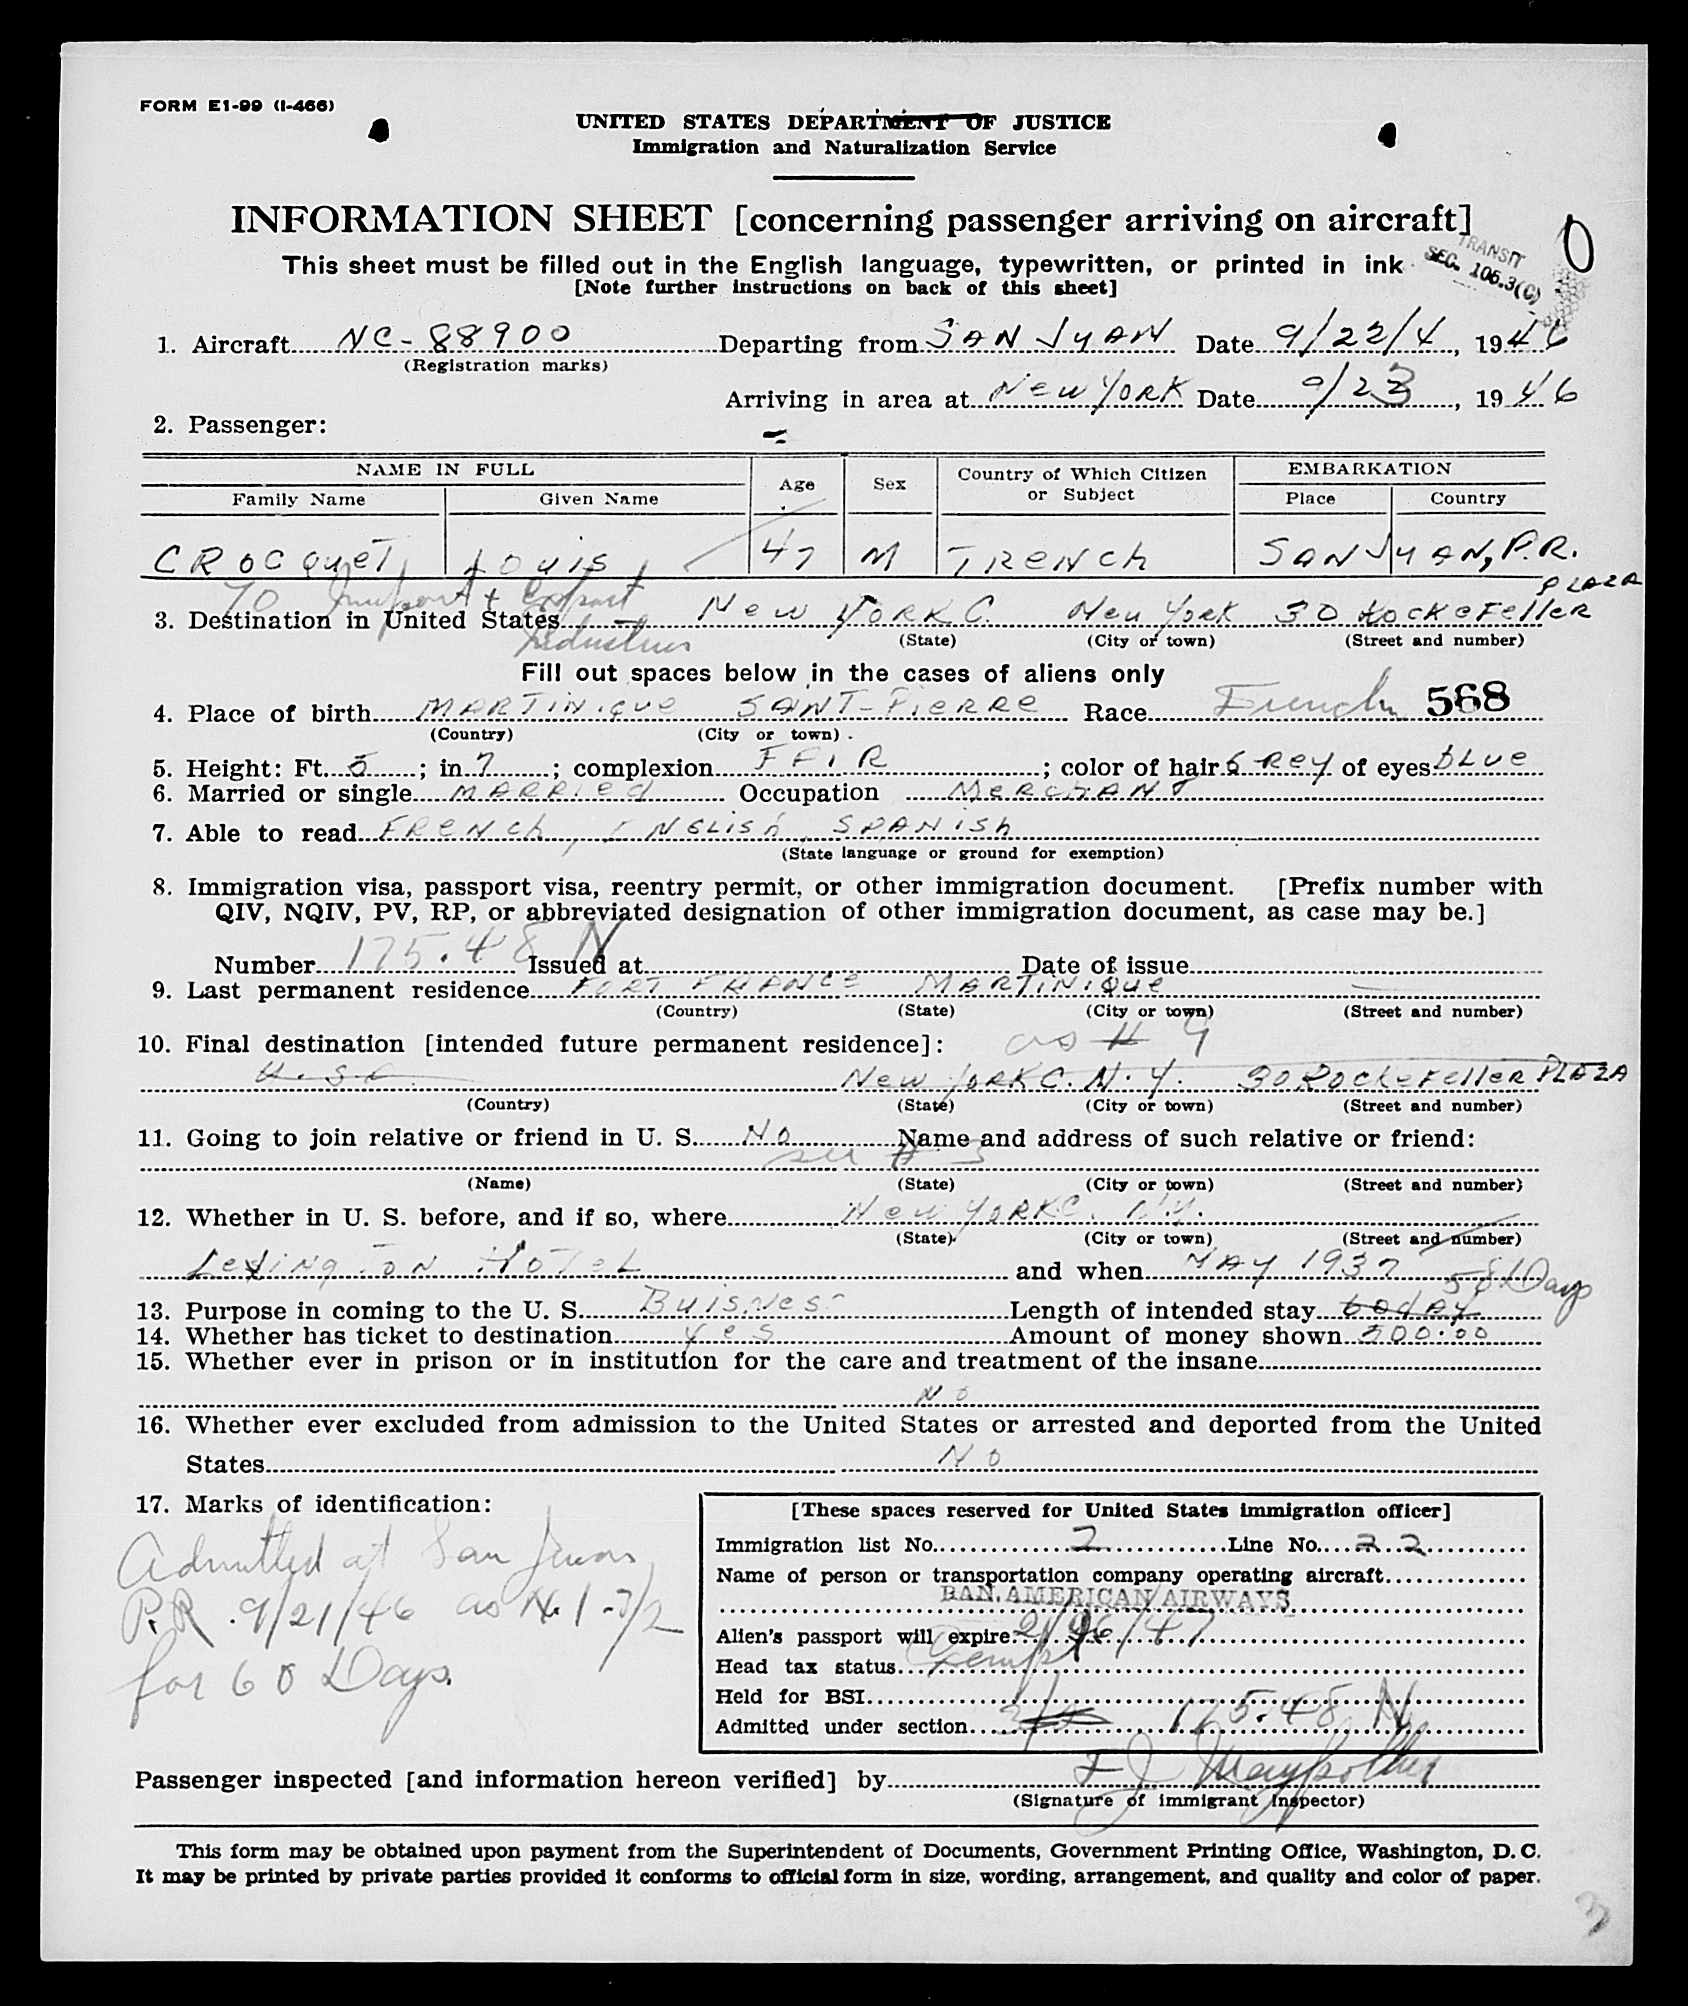 FORM E1-99 (I-466)
UNITED STATES DEPARTMENT OF JUSTICE
Immigration and Naturalization Service
INFORMATION SHEET [concerning passenger arriving on aircraft]
This sheet must be filled out in the English language, typewritten, or printed in ink
[Note further instructions on back of this sheet]
TRANSIT
SEC. 106.3(C)
1. Aircraft NC-88900 Departing from SAN JUAN Date 9/22/4, 1946
(Registration marks)
Arriving in area at New York Date 9/23, 1946
2. Passenger:
NAME IN FULL Age Sex Country of Which Citizen or Subject EMBARKATION
Family Name Given Name Place Country
CROCQUET Louis 47 M FRENCh SAN JUAN, P.R.
To Import & Export
3. Destination in United States New York C. New York 30 Rockefeller PLAZA
(State) (City or town) (Street and number)
Fill out spaces below in the cases of aliens only
4. Place of birth MARTiNique SAiNT-PieRRe Race French 568
(Country) (City or town)
5. Height: Ft. 5; in. 7; complexion FAIR; color of hair GRey of eyes bLue
6. Married or single MARRied Occupation MeRChANT
7. Able to read FReNch, ENGLish, SPANish
(State language or ground for exemption)
8. Immigration visa, passport visa, reentry permit, or other immigration document. [Prefix number with
QIV, NQIV, PV, RP, or abbreviated designation of other immigration document, as case may be.]
Number 175.48 N Issued at Date of issue
9. Last permanent residence FORT FRANCe MARTiNique
(Country) (State) (City or town) (Street and number)
10. Final destination [intended future permanent residence]: as # 9
U.S.A. New York C. N.Y. 30 Rockefeller PLAZA
(Country) (State) (City or town) (Street and number)
11. Going to join relative or friend in U. S. No Name and address of such relative or friend:
see # 3
(Name) (State) (City or town) (Street and number)
12. Whether in U. S. before, and if so, where New York C. N.Y.
(State) (City or town) (Street and number)
Lexington HoTeL and when MAY 1937
58 Days
13. Purpose in coming to the U. S. Buisness Length of intended stay 60 day
14. Whether has ticket to destination yes Amount of money shown 300.00
15. Whether ever in prison or in institution for the care and treatment of the insane
No
16. Whether ever excluded from admission to the United States or arrested and deported from the United
States No
17. Marks of identification:
Admitted at San Juan,
P.R. 9/21/46 as 3/2
for 60 Days.
[These spaces reserved for United States immigration officer]
Immigration list No. 2 Line No. 22
Name of person or transportation company operating aircraft
PAN AMERICAN AIRWAYS
Alien's passport will expire 2/26/47
Head tax status Exempt
Held for BSI
Admitted under section 175.48 N
Passenger inspected [and information hereon verified] by
(Signature of immigrant inspector)
This form may be obtained upon payment from the Superintendent of Documents, Government Printing Office, Washington, D. C.
It may be printed by private parties provided it conforms to official form in size, wording, arrangement, and quality and color of paper.
3